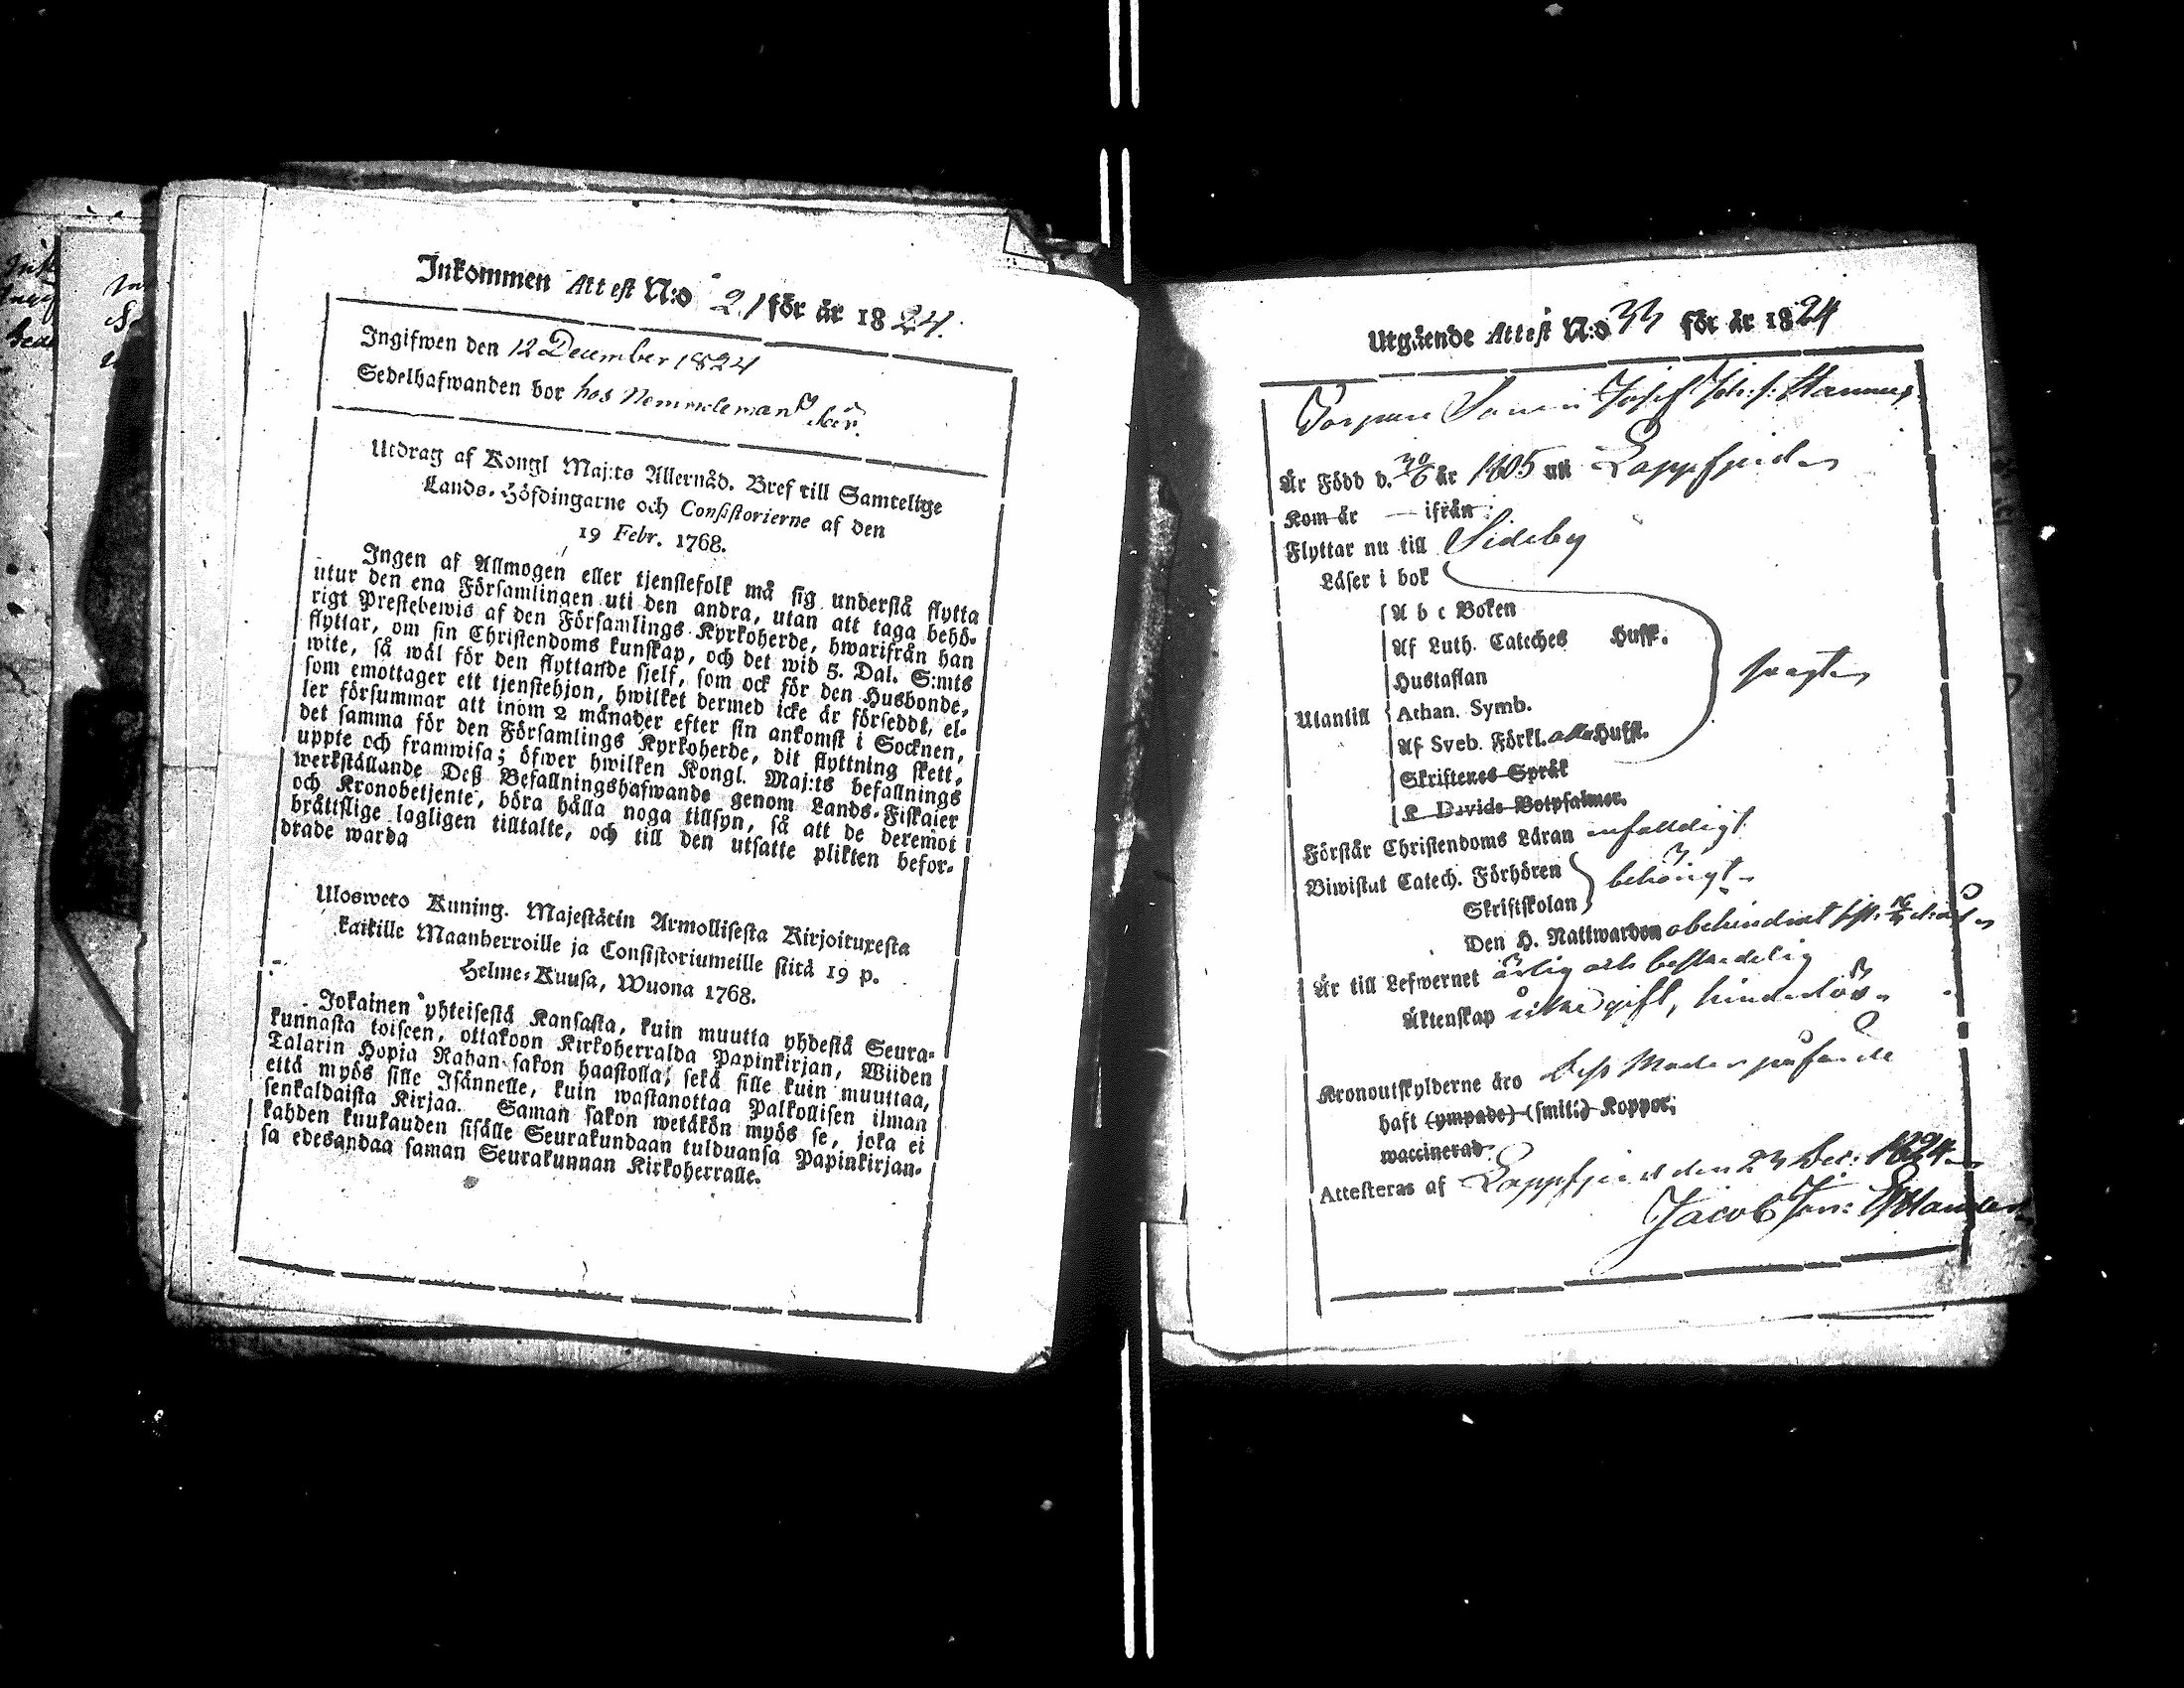 Inkommen Attest N:o 21 för år 1824.
Ingifwen den 12 December 1824
Sedelhafwanden bor hos
Utdrag af Kongl Maj:ts Allernåd. Bref till Samtelige
Lands-Höfdingarne och Consistorierne af den
19 Febr. 1768.
Ingen af Allmogen eller tjenstefolk må sig understå flytta
utur den ena Församlingen uti den andra, utan att taga behö-
rigt Prestebewis af den Församlings Kyrkoherde, hwarifrån han
flyttar, om sin Christendoms kunskap, och det wid 5. Dal. S:mts
wite, så wäl för den flyttande sjelf, som ock för den Husbonde,
som emottager ett tjenstehjon, hwilket dermed icke är försedt, el-
ler försummar att inom 2 månader efter sin ankomst i Socknen,
det samma för den Församlings Kyrkoherde, dit flyttning skett,
uppte och framwisa; öfwer hwilken Kongl. Maj:ts befallnings
werkställande Deß Befallningshafwande genom Lands-Fiskaler
och Kronobetjente, böra hålla noga tillsyn, så att de deremot
bråttslige lagligen tilltalte, och till den utsatte plikten befor-
drade warda
Ulosweto Kuning. Majestätin Armollisesta Kirjoituxesta
kaikille Maanherroille ja Consistoriumeille siitä 19 p.
Helme-Kuusa, Wuona 1768.
Jokainen yhteisestä Kansasta, kuin muutta yhdestä Seura-
kunnasta toiseen, ottakoon Kirkoherralda Papinkirjan, Wiiden
Talarin Hopia Rahan sakon haastolla, sekä sille kuin muuttaa,
että myös sille Isännelle, kuin wastanottaa Palkollisen ilman
senkaldaista Kirjaa. Saman sakon wetäkön myös se, joka ei
kahden kuukauden sisälle Seurakundaan tulduansa Papinkirjan-
sa edesandaa saman Seurakunnan Kirkoherralle.
Utgående Attest N:o 33 för år 1824
Sonen Josef
Är Född d. år 1805 uti Lappfjerd
Kom år — ifrån
Flyttar nu till Sideby
Läser i bok
A b c Boken
Af Luth. Cateches Hufst.
Hustaflan
Utantill Athan. Symb.
Af Sveb. Förkl. alla Hufst.
Skriftenes Språk
K Davids Botpsalmer.
Förstår Christendoms Läran enfalldigt
Biwistat Catech. Förhören behörigt
Skriftskolan
Den H. Nattwarden obehindrat
Är till Lefwernet ärlig och beskedelig
Äktenskap icke gift, hinderlös
Kronoutskylderne äro
haft (ympade) (smitt:) Koppor,
waccinerad.
Attesteras af Lappfjerd den 23 Dec: 1824
Jacob Jon: